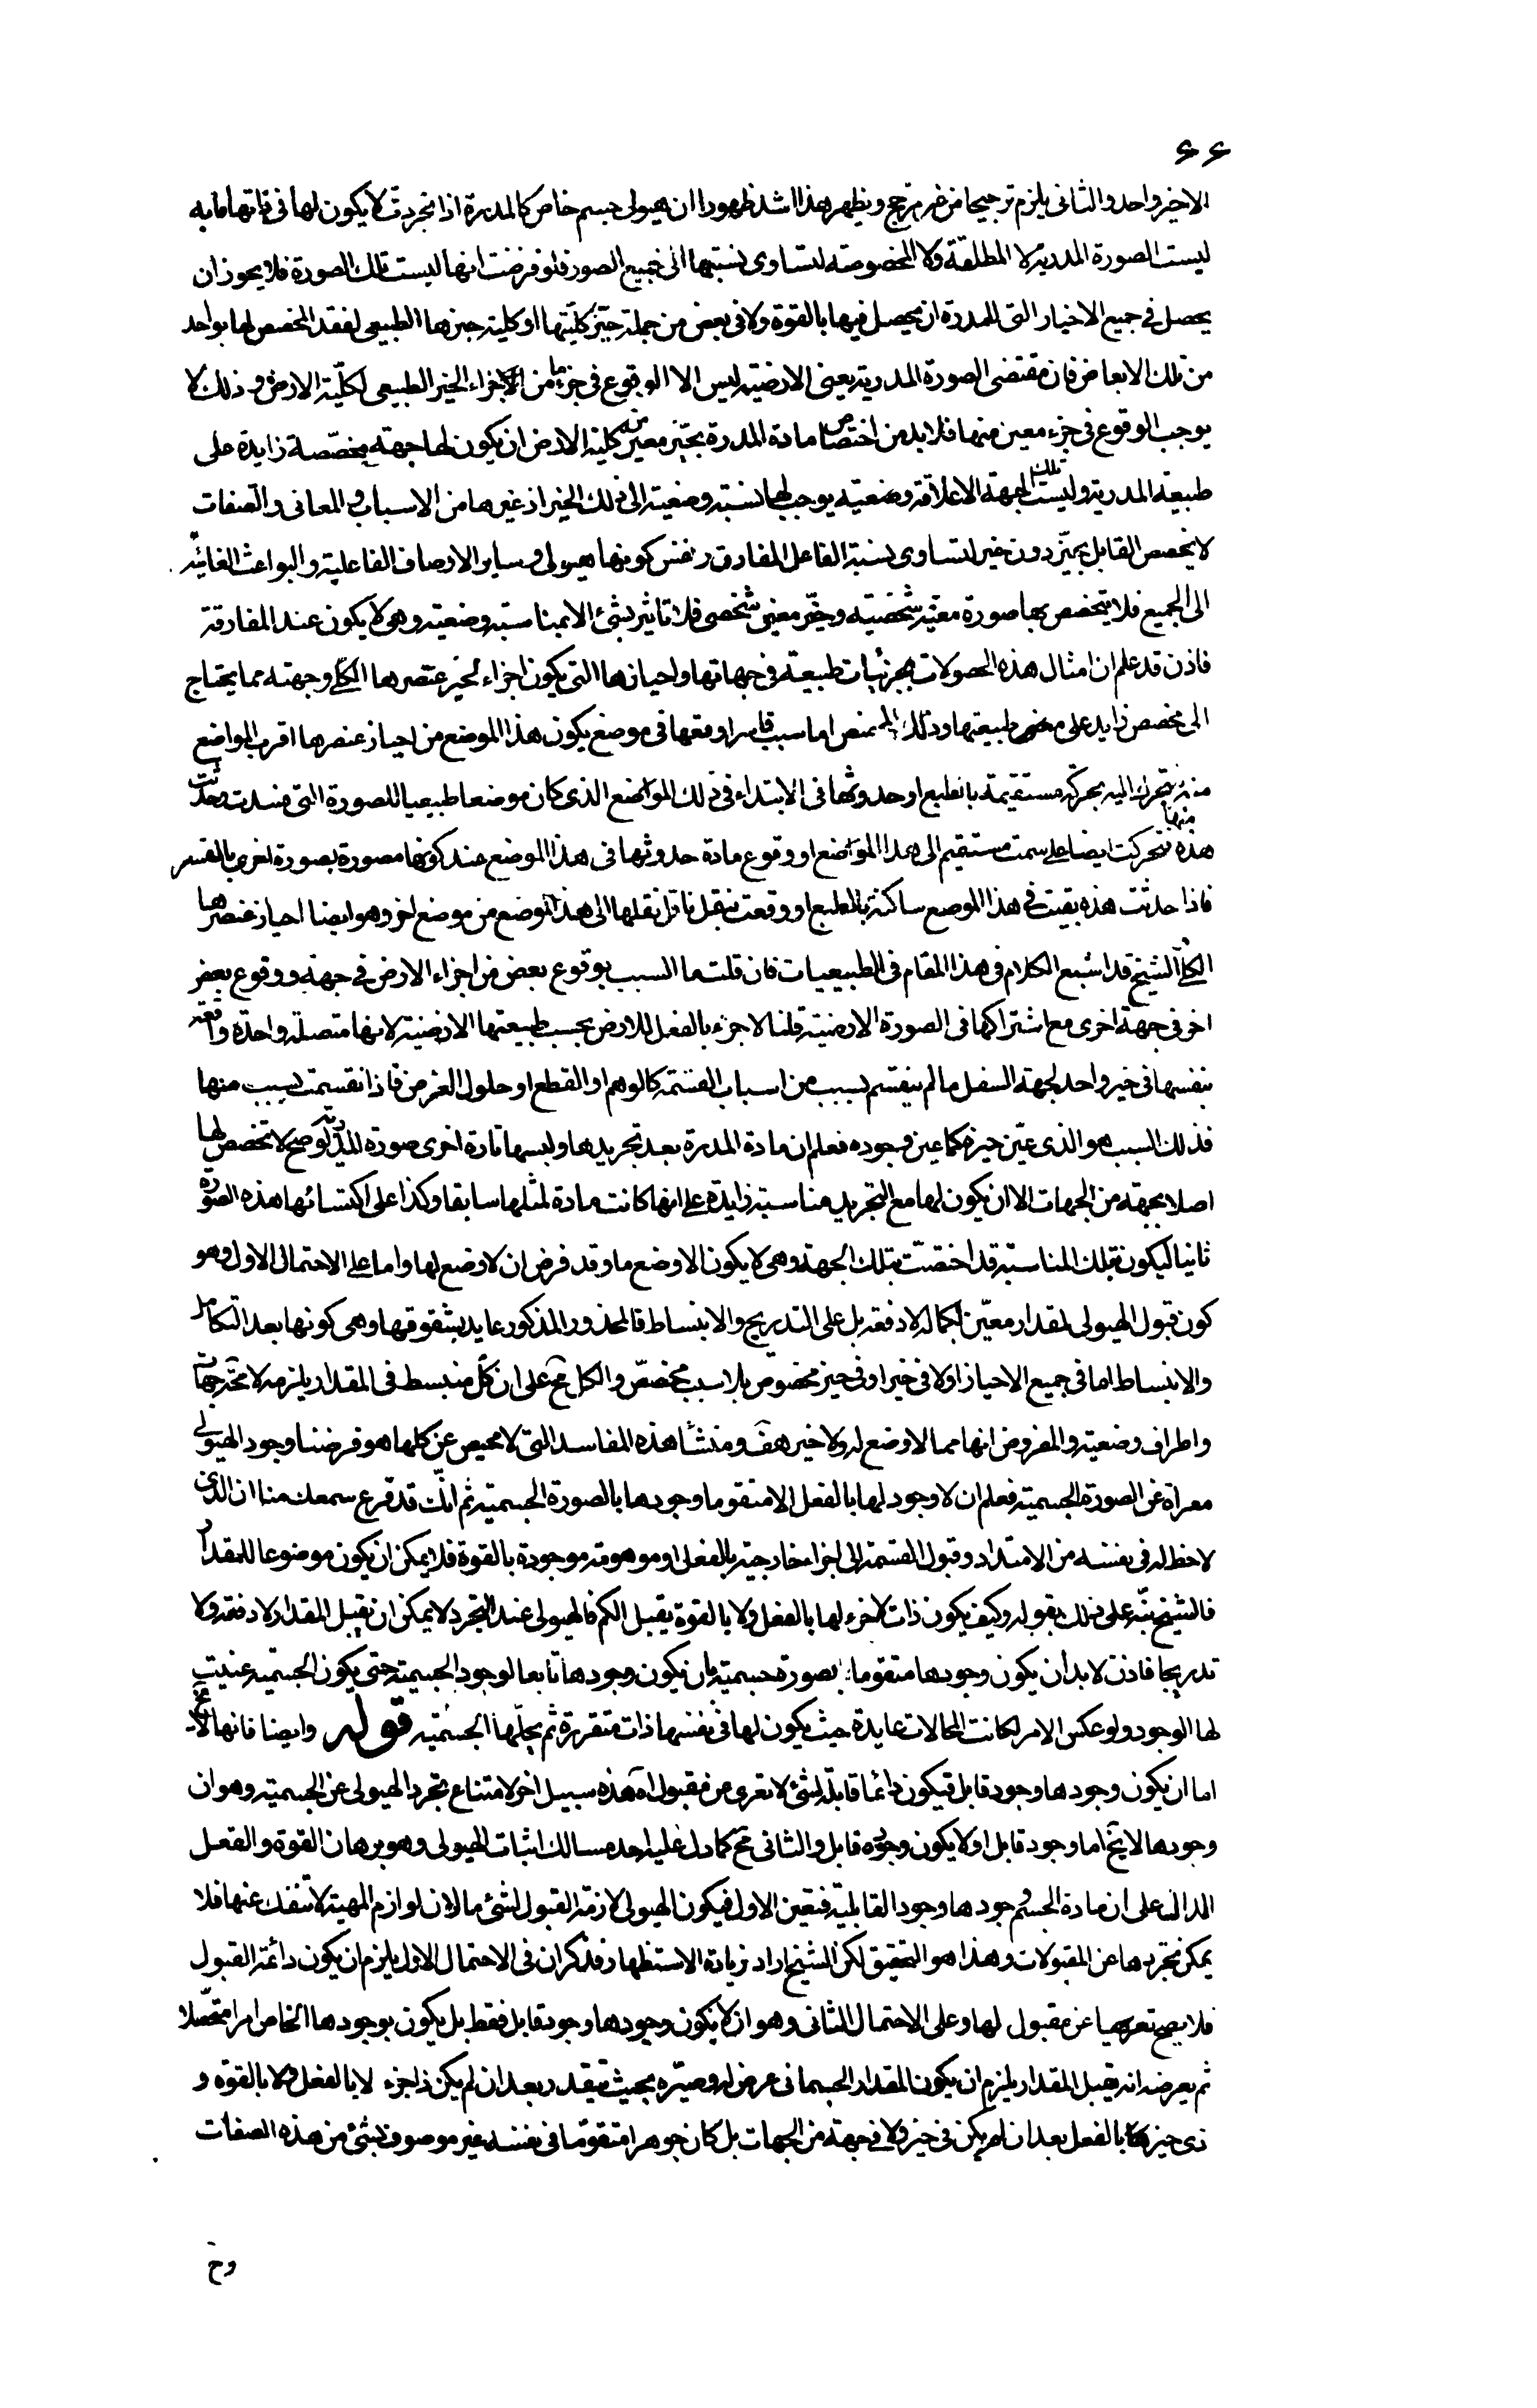 ٦٦
الاخير واحد والثانى يلزم ترجيحا من غير مرجح ويظهر هذا اشد ظهورا ان هيولى جسم خاص كالمدرة اذا تجردت لا يكون لها فى ذاتها ما به
ليست الصورة المدرية لا المطلقة ولا المخصوصة لتساوى نسبتها الى جميع الصور فلو فرضت انها ليست تلك الصورة فلا يجوز ان
يحصل فى جميع الاحياز التى للمدرة ان يحصل فيها بالقوة ولا فى بعض من جملة حيّز كليّتها او كلية حيزها الطبيعى لفقد المخصص لها بواحد
من تلك الابعاض فان مقتضى الصورة المدرية يعنى الارضية ليس الا الوقوع فى جزء ما من الاجزاء الحيز الطبيعى لكلّية الارض وذلك لا
يوجب الوقوع فى جزء معين منها فلا بد من اختصاص مادة المدرة بحيّز معين من كلية الارض ان يكون لها جهة مخصّصة زايدة على
طبيعة المدرية وليست تلك الجهة الا علاقة وضعية يوجب لها نسبة وضعية الى ذلك الحيز اذ غيرها من الاسباب والمعانى والصفات
لا يخصص القابل بحيّز دون حيز لتساوى نسبة الفاعل المفارق ونفس كونها هيولى وساير الاوصاف الفاعلية والبواعث الغائيّة
الى الجميع فلا يتخصص بها صورة معيّنة شخصية وحيّز معين شخصى فلا تاثير بشئ الا بمناسبة وضعية وهى لا يكون عند المفارقة
فاذن قد علم ان امثال هذه الحصولات بجزئيات طبيعة فى جهاتها واحيازها التى يكون اجزاء لحيز عنصرها الكلّى وجهته مما يحتاج
الى مخصص زايد على محض طبيعتها وذلك المخصص اما سبب قاسر اوقعها فى موضع يكون هذا الموضع من احياز عنصرها اقرب المواضع
منه يتحرك اليه بحركة مستقيمة بالطبع او حدوثها فى الابتداء فى ذلك المواضع الذى كان موضعا طبيعيا للصورة التى فسدت وحدثت
منها هذه فتحركت ايضا على سمت مستقيم الى هذا المواضع او وقوع مادة حدوثها فى هذا الموضع عند كونها مصورة بصورة اخرى بالقسر
فاذا حدثت هذه بقيت فى هذا الموضع ساكنة بالطبع او وقعت بنقل ناقل نقلها الى هذا الموضع من موضع اخر وهو ايضا احياز عنصرها
الكلّى الشيخ قد اشبع الكلام فى هذا المقام فى الطبيعيات فان قلت ما السبب بوقوع بعض من اجزاء الارض فى جهة ووقوع بعض
اخر فى جهة اخرى مع اشتراكها فى الصورة الارضية قلنا لا جزء بالفعل للارض بحسب طبيعتها الارضية لانها متصلة واحدة واقعة
بنفسها فى حيز واحد لجهة السفل ما لم ينقسم بسبب من اسباب القسمة كالوهم او القطع او حلول العرض فاذا انقسمت بسبب منها
فذلك السبب هو الذى عيّن حيزه كما عين وجوده فعلم ان مادة المدرة بعد تجريدها ولبسها تارة اخرى صورة المدرية لو صح لا تخصص لها
اصلا بجهة من الجهات الا ان يكون لها مع التجريد مناسبة زايدة على انها كانت مادة لمثلها سابقا وكذا على اكتسائها هذه الصورة
ثانيا ليكون بتلك المناسبة قد اختصّت بتلك الجهة وهى لا يكون الا وضع ما وقد فرض ان لا وضع لها واما على الاحتمال الاول وهو
كون قبول الهيولى لمقدار معيّن بكماله لا دفعة بل على التدريج والانبساط فالمحذور المذكور عايد بشقوقها وهى كونها بعد التكامل
والانبساط اما فى جميع الاحياز اولا فى حيز او فى حيز مخصوص بلا سبب مخصّص والكل مح على ان كل منبسط فى المقدار يلزمه لا محة جهات
واطراف وضعية والمفروض انها مما لا وضع له ولا حيز هف ومنشأ هذه المفاسد التى لا محيص عن كلها هو فرضنا وجود الهيولى
معراة عن الصورة الجسمية فعلم ان لا وجود لها بالفعل الا متقوما وجودها بالصورة الجسمية ثم انّك قد قرع سمعك منا ان الذى
لا حظ له فى نفسه من الامتداد وقبول القسمة الى اجزاء خارجية بالفعل او موهومة موجودة بالقوة فلا يمكن ان يكون موضوعا للمقدار
فالشيخ نبّه على ذلك بقوله وكيف يكون ذات لا جزء لها بالفعل ولا بالقوة يقبل الكم فالهيولى عند التجرد لا يمكن ان يقبل المقدار لا دفعة ولا
تدريجا فاذن لا بد ان يكون وجودها متقوما بصورة جسمية بان يكون وجودها تابعا لوجود الجسمية حتى يكون الجسمية
لها الوجود ولو عكس الامر لكانت المحالات عايدة حيث يكون لها فى نفسها ذات متقررة ثم يحلّها الجسمية قوله وايضا فانها لا يخ
اما ان يكون وجودها وجود قابل فيكون دائما قابلة لشئ لا تعرى عن مقبول اه هذه سبيل اخر لامتناع تجرد الهيولى عن الجسمية وهو ان
وجودها لا يخ اما وجود قابل او لا يكون وجوده قابل والثانى مح كما دل عليه احد مسالك اثبات الهيولى وهو برهان القوة والفعل
الدال على ان مادة الجسم وجودها وجود القابلية فتعين الاول فيكون الهيولى لازمة القبول لشئ ما لان لوازم المهية لا تنفك عنها فلا
يمكن تجريدها عن المقبولات وهذا هو التحقيق لكن الشيخ اراد زيادة الاستظهار فذكر ان فى الاحتمال الاول يلزم ان يكون دائمة القبول
فلا يصح تعريها عن مقبول لها وعلى الاحتمال الثانى وهو ان لا يكون وجودها وجود قابل فقط بل يكون بوجودها الخاص امرا متحصّلا
ثم يعرضه انه يقبل المقدار يلزم ان يكون المقدار الجسمانى عرض له وصيّره بحيث يتقدر بعد ان لم يكن ذا جزء لا بالفعل ولا بالقوة و
ذى حيز بالفعل بعد ان لم يكن فى حيز ولا فى جهة من الجهات بل كان جوهرا متقوّما فى نفسه غير موصوف بشئ من هذه الصفات
وح